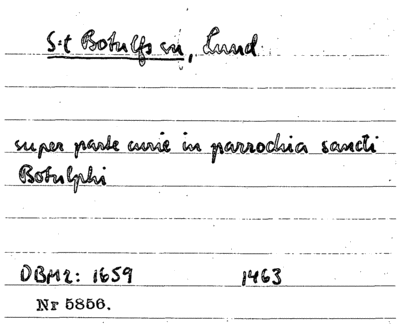 S:t Botulfs sn, Lund.
super parte curie in parrochia sancti
Botulphi
DBM2: 1659 1463
Nr 5856.